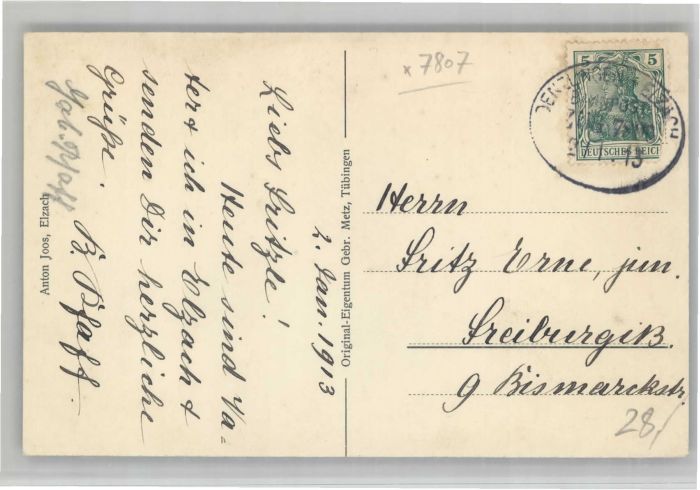 2. Jan. 1913
Liebs Fritzle!
Heute sind Va-
ters ich in Elzach &
senden Dir herzliche
Grüße.
B. Pfaff.
Anton Joos, Elzach
Original-Eigentum Gebr. Metz, Tübingen
x 7807
5 5
DEUTSCHES REICH
DENZLINGEN ELZACH
13
Herrn
Fritz Erne, jun.
Freiburg i/B.
9 Bismarckstr.
28,